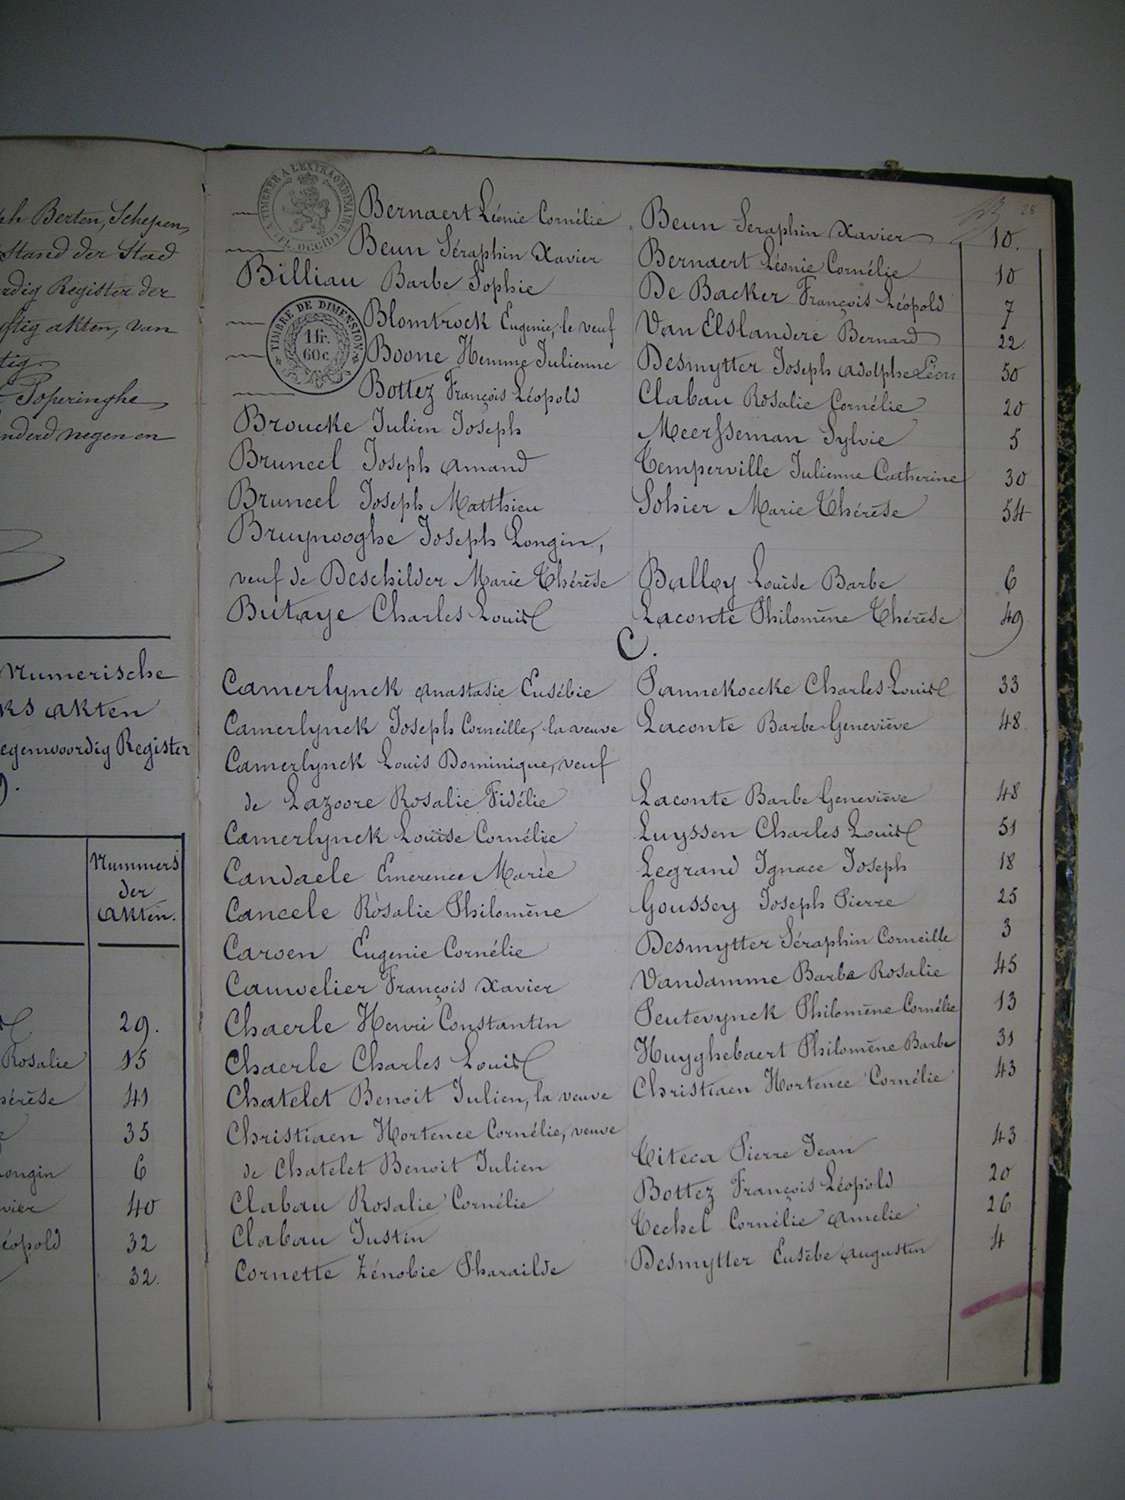 ph Berten, Schepen
Stand der Stad
rdig Register der
ftig akten, van
tig
Poperinghe
nderd negen en
Numerische
ks akten
egenwoordig Register
Nummers
der
akten.
29.
Rosalie 15
hérèse 41
35
ongin 6
vier 40
éopold 32
32.
TIMBRE A L'EXTRAORDINAIRE
FL. OCCIDLE
TIMBRE DE DIMENSION
1 fr.
60 c.
28
Bernaert Léonie Cornélie Beun Seraphin Xavier 10.
Beun Séraphin Xavier Bernaert Léonie Cornélie 10
Billiau Barbe Sophie De Backer François Léopold 7
Blomtrock Eugenie, le veuf Van Elslandere Bernard 22
Boone Hemme Julienne Desmytter Joseph Adolphe Léon 50
Bottez François Léopold Clabau Rosalie Cornélie 20
Broucke Julien Joseph Meersseman Sylvie 5
Bruneel Joseph Amand Temperville Julienne Catherine 30
Bruneel Joseph Matthieu Sohier Marie Thérèse 54
Bruynooghe Joseph Longin,
veuf de Deschilder Marie Thérèse Balloy Louise Barbe 6
Butaye Charles Louis Laconte Philomène Thérèse 49
C.
Camerlynck Anastasie Eusébie Pannekoecke Charles Louis 33
Camerlynck Joseph Corneille, la veuve Laconte Barbe Geneviève 48
Camerlynck Louis Dominique, veuf
de Lazoore Rosalie Fidélie Laconte Barbe Geneviève 48
Camerlynck Louise Cornélie Luyssen Charles Louis 51
Candaele Emerence Marie Legrand Ignace Joseph 18
Caneele Rosalie Philomène Goussey Joseph Pierre 25
Caroen Eugenie Cornélie Desmytter Séraphin Corneille 3
Cauwelier François Xavier Vandamme Barbe Rosalie 45
Chaerle Henri Constantin Peutevynck Philomène Cornélie 13
Chaerle Charles Louis Huyghebaert Philomène Barbe 31
Chatelet Benoit Julien, la veuve Christiaen Hortence Cornélie 43
Christiaen Hortence Cornélie, veuve
de Chatelet Benoit Julien Titeca Pierre Jean 43
Clabau Rosalie Cornélie Bottez François Léopold 20
Clabau Justin Techel Cornélie Amelie 26
Cornette Zénobie Pharailde Desmytter Eusèbe Augustin 4